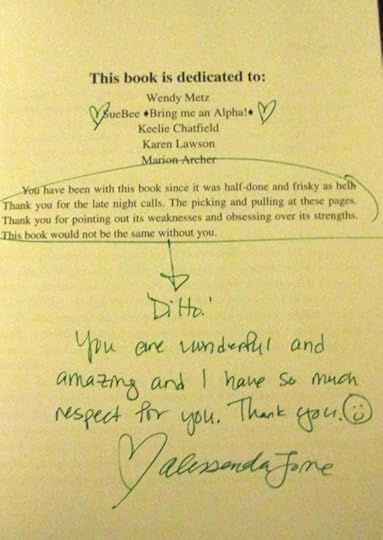 This book is dedicated to:
Wendy Metz
SueBee ♦Bring me an Alpha!♦
Keelie Chatfield
Karen Lawson
Marion Archer
You have been with this book since it was half-done and frisky as hell.
Thank you for the late night calls. The picking and pulling at these pages.
Thank you for pointing out its weaknesses and obsessing over its strengths.
This book would not be the same without you.
'Ditto.'
You are wonderful and
amazing and I have so much
respect for you. Thank you.